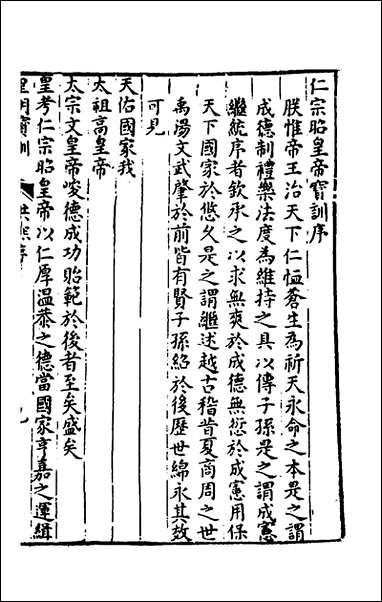 仁宗昭皇帝寳訓序
朕惟帝王治天下仁恤蒼生為祈天永命之本是之謂
成德制禮樂法度為維持之具以傳子孫是之謂成憲
繼統序者欽承之以求無爽於成德無愆於成憲用保
天下國家於悠久是之謂繼述越古稽昔夏商周之世
禹湯文武肇於前皆有賢子孫紹於後歷世綿永其效
可見
天佑國家我
太祖高皇帝
太宗文皇帝峻德成功貽範於後者至矣盛矣
皇考仁宗昭皇帝以仁厚温恭之德當國家亨嘉之運緝
皇明寳訓 洪熈序 九